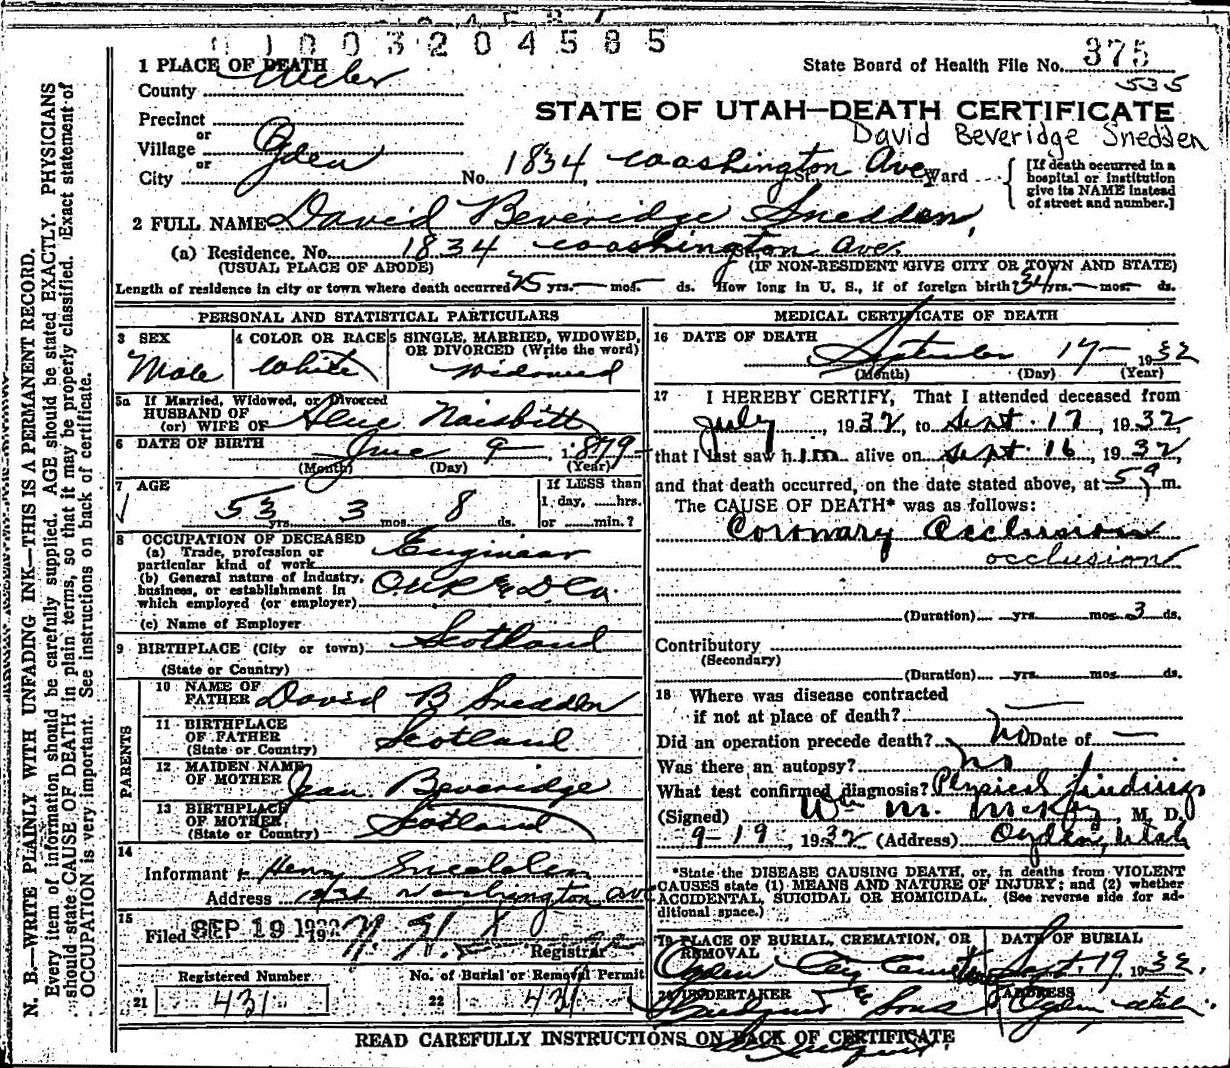 0 1 0 0 3 2 0 4 5 8 5
1 PLACE OF DEATH
County Weber
State Board of Health File No. 375
535
STATE OF UTAH—DEATH CERTIFICATE
David Beveridge Snedden
Precinct
or
Village
or
City Ogden No. 1834 Washington Ave St. Ward
[If death occurred in a hospital or institution give its NAME instead of street and number.]
2 FULL NAME David Beveridge Snedden,
(a) Residence. No. 1834 Washington Ave.
(USUAL PLACE OF ABODE) (IF NON-RESIDENT GIVE CITY OR TOWN AND STATE)
Length of residence in city or town where death occurred 25 yrs. — mos. — ds. How long in U. S., if of foreign birth? 34 yrs. — mos. — ds.
PERSONAL AND STATISTICAL PARTICULARS
3 SEX
Male
4 COLOR OR RACE
White
5 SINGLE, MARRIED, WIDOWED, OR DIVORCED (Write the word)
Widowed
5a If Married, Widowed, or Divorced
HUSBAND OF
(or) WIFE OF Naisbitt
6 DATE OF BIRTH June 9 — 1879 —
(Month) (Day) (Year)
7 AGE
53 yrs. 3 mos. 8 ds.
If LESS than
1 day, ......hrs.
or ......min.?
8 OCCUPATION OF DECEASED
(a) Trade, profession or particular kind of work Engineer
(b) General nature of industry, business, or establishment in which employed (or employer) O U R & D Co.
(c) Name of Employer
9 BIRTHPLACE (City or town) Scotland
(State or Country)
PARENTS
10 NAME OF FATHER David B Snedden
11 BIRTHPLACE OF FATHER (State or Country) Scotland
12 MAIDEN NAME OF MOTHER Jean Beveridge
13 BIRTHPLACE OF MOTHER (State or Country) Scotland
14
Informant Henry Snedden
Address Washington ave
15
Filed SEP 19 1932 19
Registrar
Registered Number
21 431
No. of Burial or Removal Permit
22 431
MEDICAL CERTIFICATE OF DEATH
16 DATE OF DEATH
September 17 — 1932
(Month) (Day) (Year)
17 I HEREBY CERTIFY, That I attended deceased from
July, 1932, to Sept. 17, 1932,
that I last saw h im alive on Sept 16, 1932,
and that death occurred, on the date stated above, at 5 a m.
The CAUSE OF DEATH* was as follows:
Coronary Occlusion
occlusion
(Duration) yrs. mos. 3 ds.
Contributory
(Secondary)
(Duration) yrs. mos. ds.
18 Where was disease contracted
if not at place of death? —
Did an operation precede death? no Date of —
Was there an autopsy? no
What test confirmed diagnosis? Physical findings
(Signed) Wm M. McKay, M. D.
9-19, 1932 (Address) Ogden, Utah
*State the DISEASE CAUSING DEATH, or, in deaths from VIOLENT
CAUSES state (1) MEANS AND NATURE OF INJURY; and (2) whether
ACCIDENTAL, SUICIDAL OR HOMICIDAL. (See reverse side for additional space.)
19 PLACE OF BURIAL, CREMATION, OR REMOVAL
Ogden City
DATE OF BURIAL
Sept. 19 1932.
20 UNDERTAKER
& Sons
ADDRESS
Ogden Utah.
READ CAREFULLY INSTRUCTIONS ON BACK OF CERTIFICATE
N. B.—WRITE PLAINLY WITH UNFADING INK—THIS IS A PERMANENT RECORD.
Every item of information should be carefully supplied. AGE should be stated EXACTLY. PHYSICIANS
should state CAUSE OF DEATH in plain terms, so that it may be properly classified. Exact statement of
OCCUPATION is very important. See instructions on back of certificate.